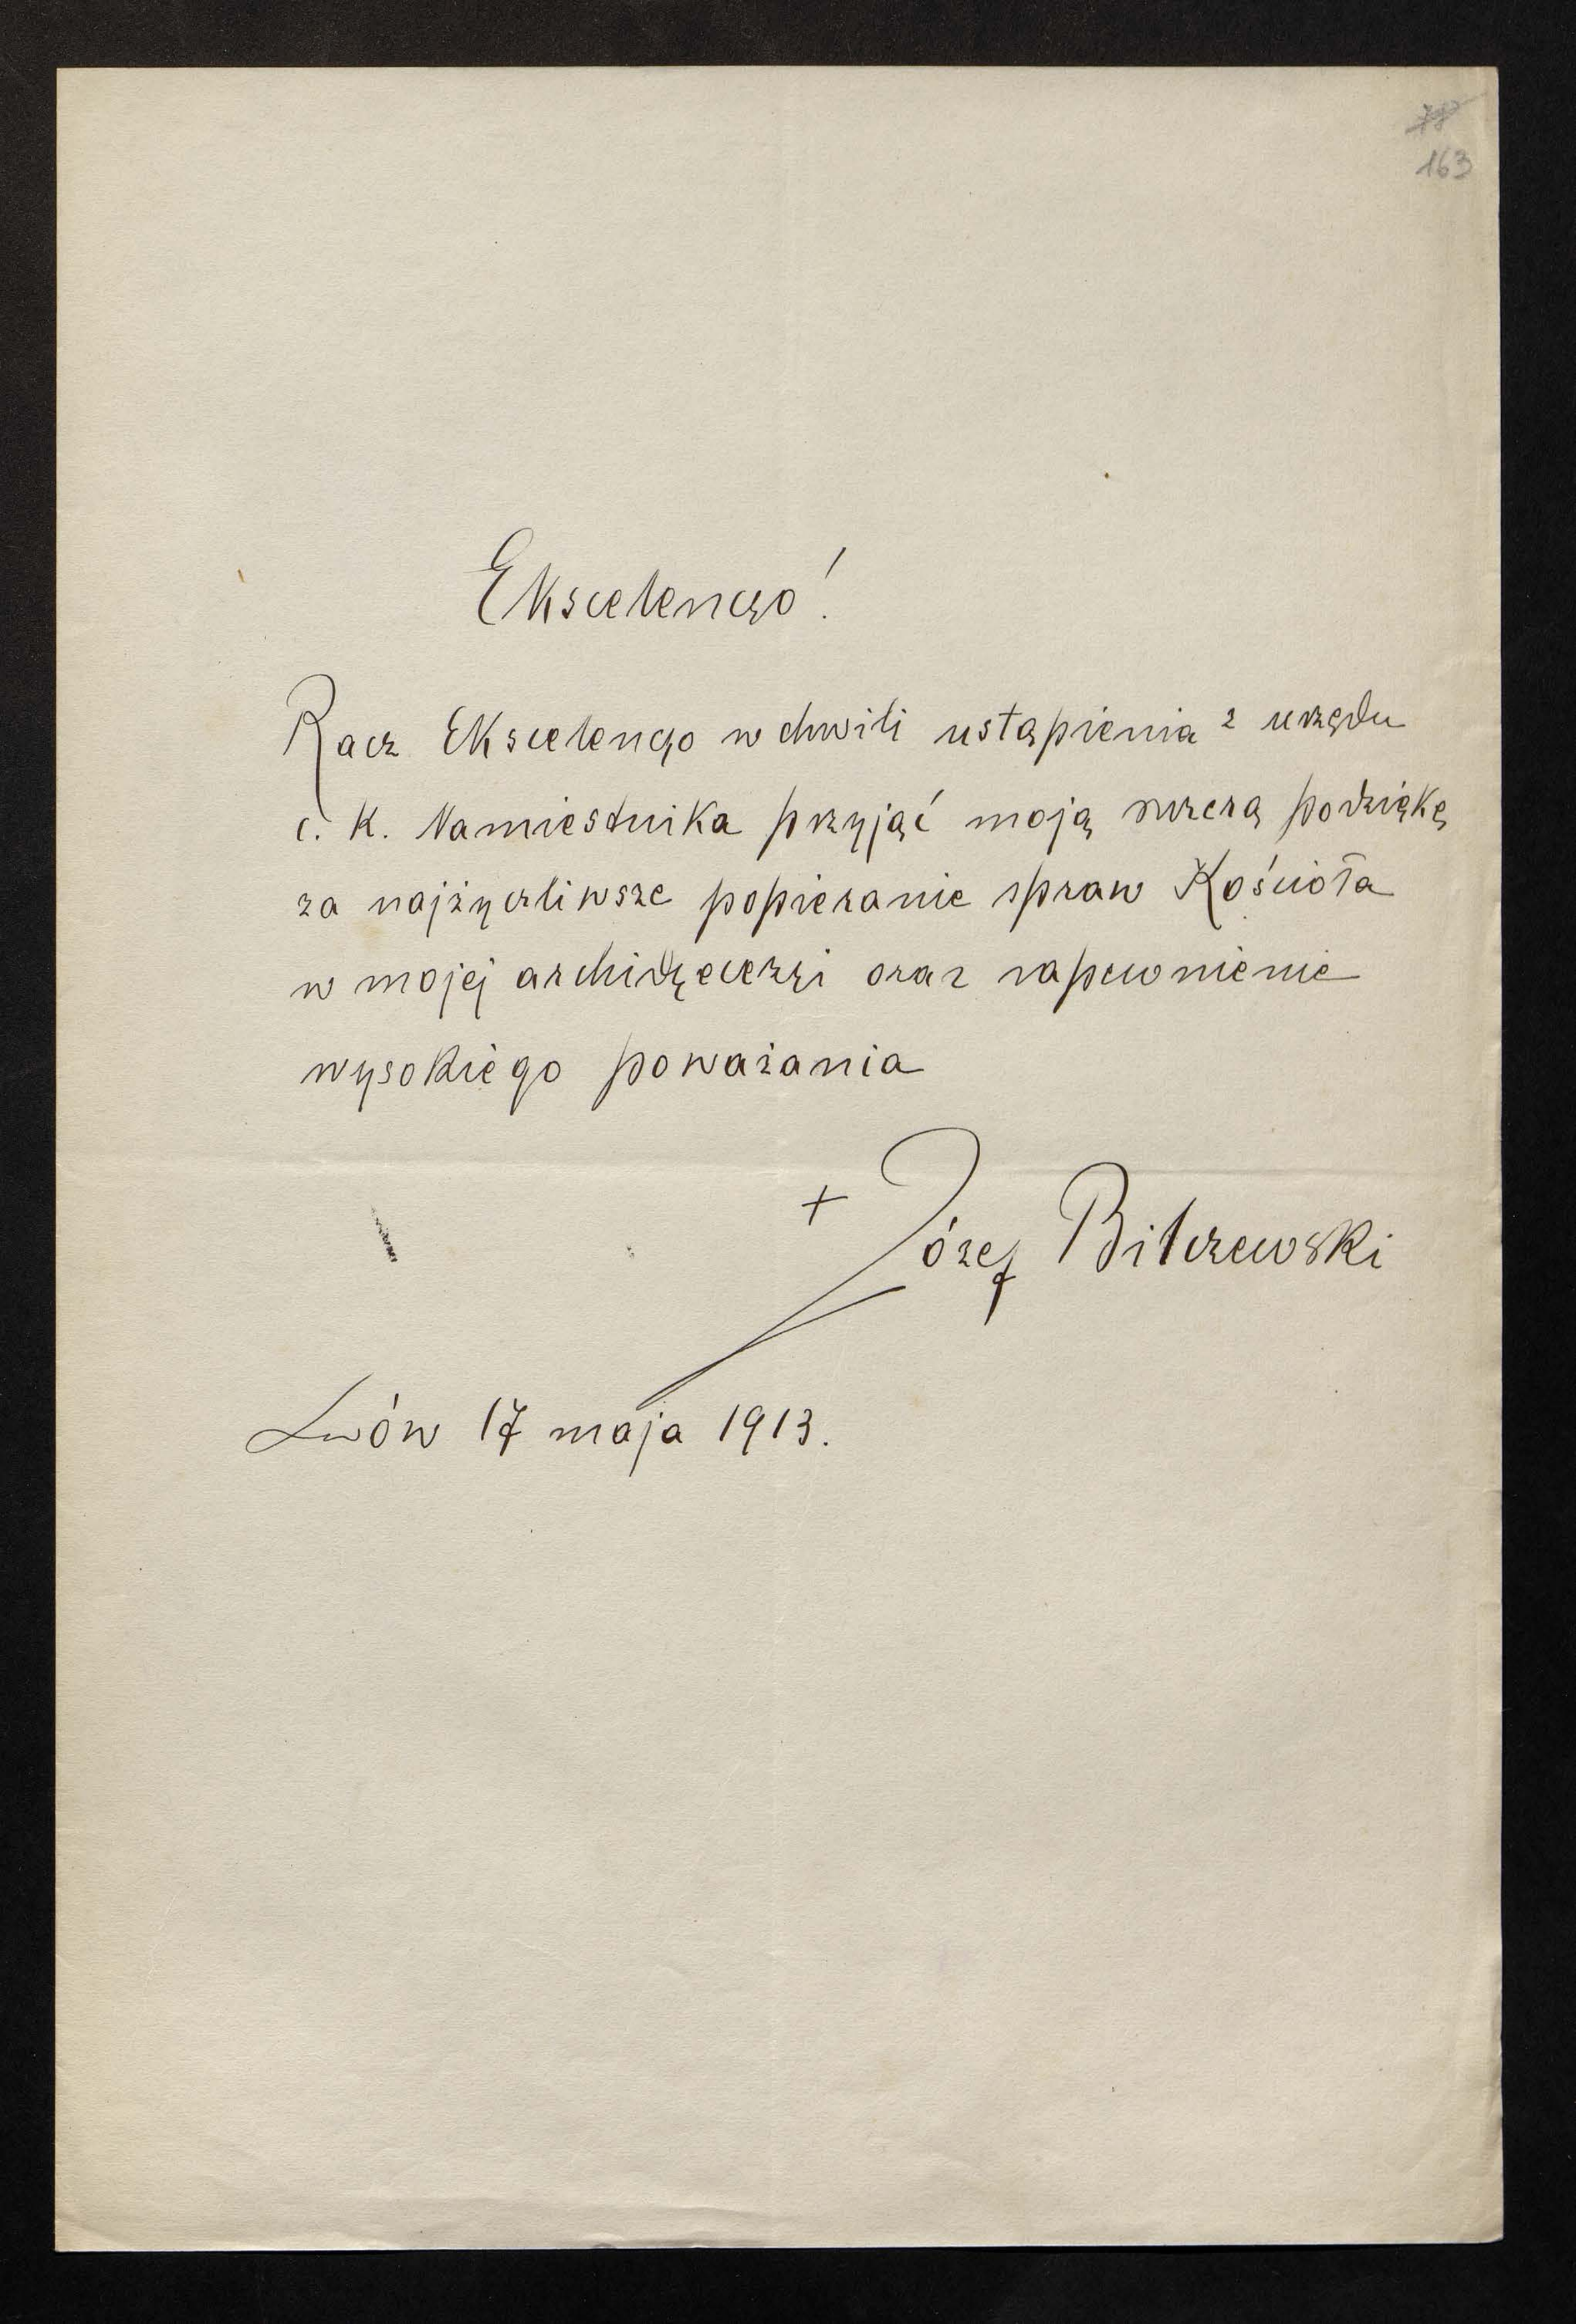 78
163
Ekscelencyo!
Racz Ekscelencyo w chwili ustąpienia z urzędu
c. k. Namiestnika przyjąć moją szczerą podziękę
za najżyczliwsze popieranie spraw Kościoła
w mojej archidyecezyi oraz zapewnienie
wysokiego poważania
+ Józef Bilczewski
Lwów 17 maja 1913.